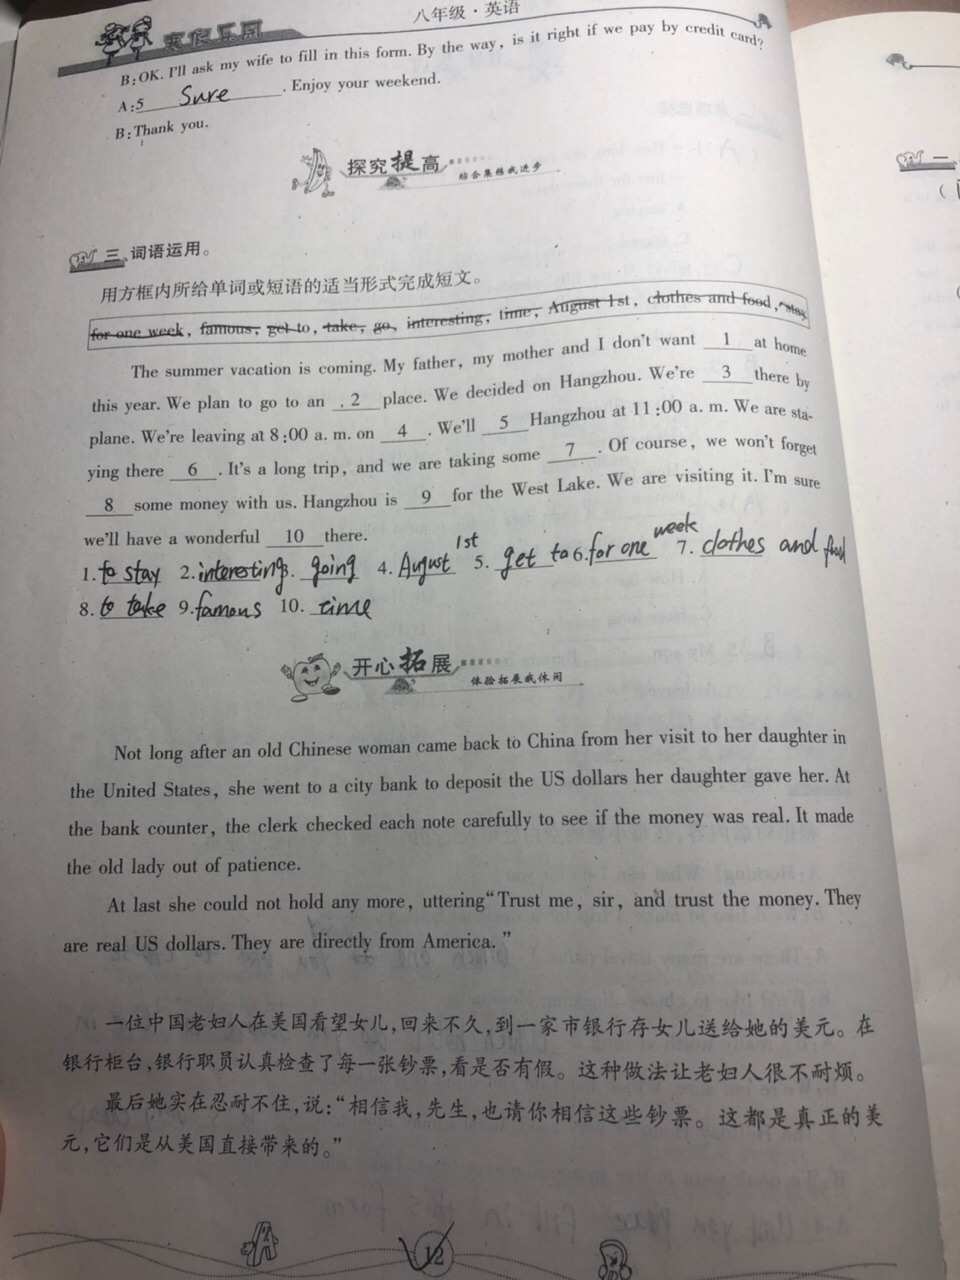 寒假乐园
八年级·英语
B:OK. I'll ask my wife to fill in this form. By the way, is it right if we pay by credit card?
A:5 Sure . Enjoy your weekend.
B:Thank you.
探究提高
结合集锦我进步
三、词语运用。
用方框内所给单词或短语的适当形式完成短文。
for one week, famous, get to, take, go, interesting, time, August 1st, clothes and food, stay
The summer vacation is coming. My father, my mother and I don't want 1 at home
this year. We plan to go to an 2 place. We decided on Hangzhou. We're 3 there by
plane. We're leaving at 8:00 a. m. on 4 . We'll 5 Hangzhou at 11:00 a. m. We are sta-
ying there 6 . It's a long trip, and we are taking some 7 . Of course, we won't forget
8 some money with us. Hangzhou is 9 for the West Lake. We are visiting it. I'm sure
we'll have a wonderful 10 there.
1. to stay 2. interesting 3. going 4. August 1st 5. get to 6. for one week 7. clothes and food
8. to take 9. famous 10. time
开心拓展
体验拓展我休闲
Not long after an old Chinese woman came back to China from her visit to her daughter in
the United States, she went to a city bank to deposit the US dollars her daughter gave her. At
the bank counter, the clerk checked each note carefully to see if the money was real. It made
the old lady out of patience.
At last she could not hold any more, uttering“Trust me, sir, and trust the money. They
are real US dollars. They are directly from America.”
一位中国老妇人在美国看望女儿,回来不久,到一家市银行存女儿送给她的美元。在
银行柜台,银行职员认真检查了每一张钞票,看是否有假。这种做法让老妇人很不耐烦。
最后她实在忍耐不住,说:“相信我,先生,也请你相信这些钞票。这都是真正的美
元,它们是从美国直接带来的。”
12
一